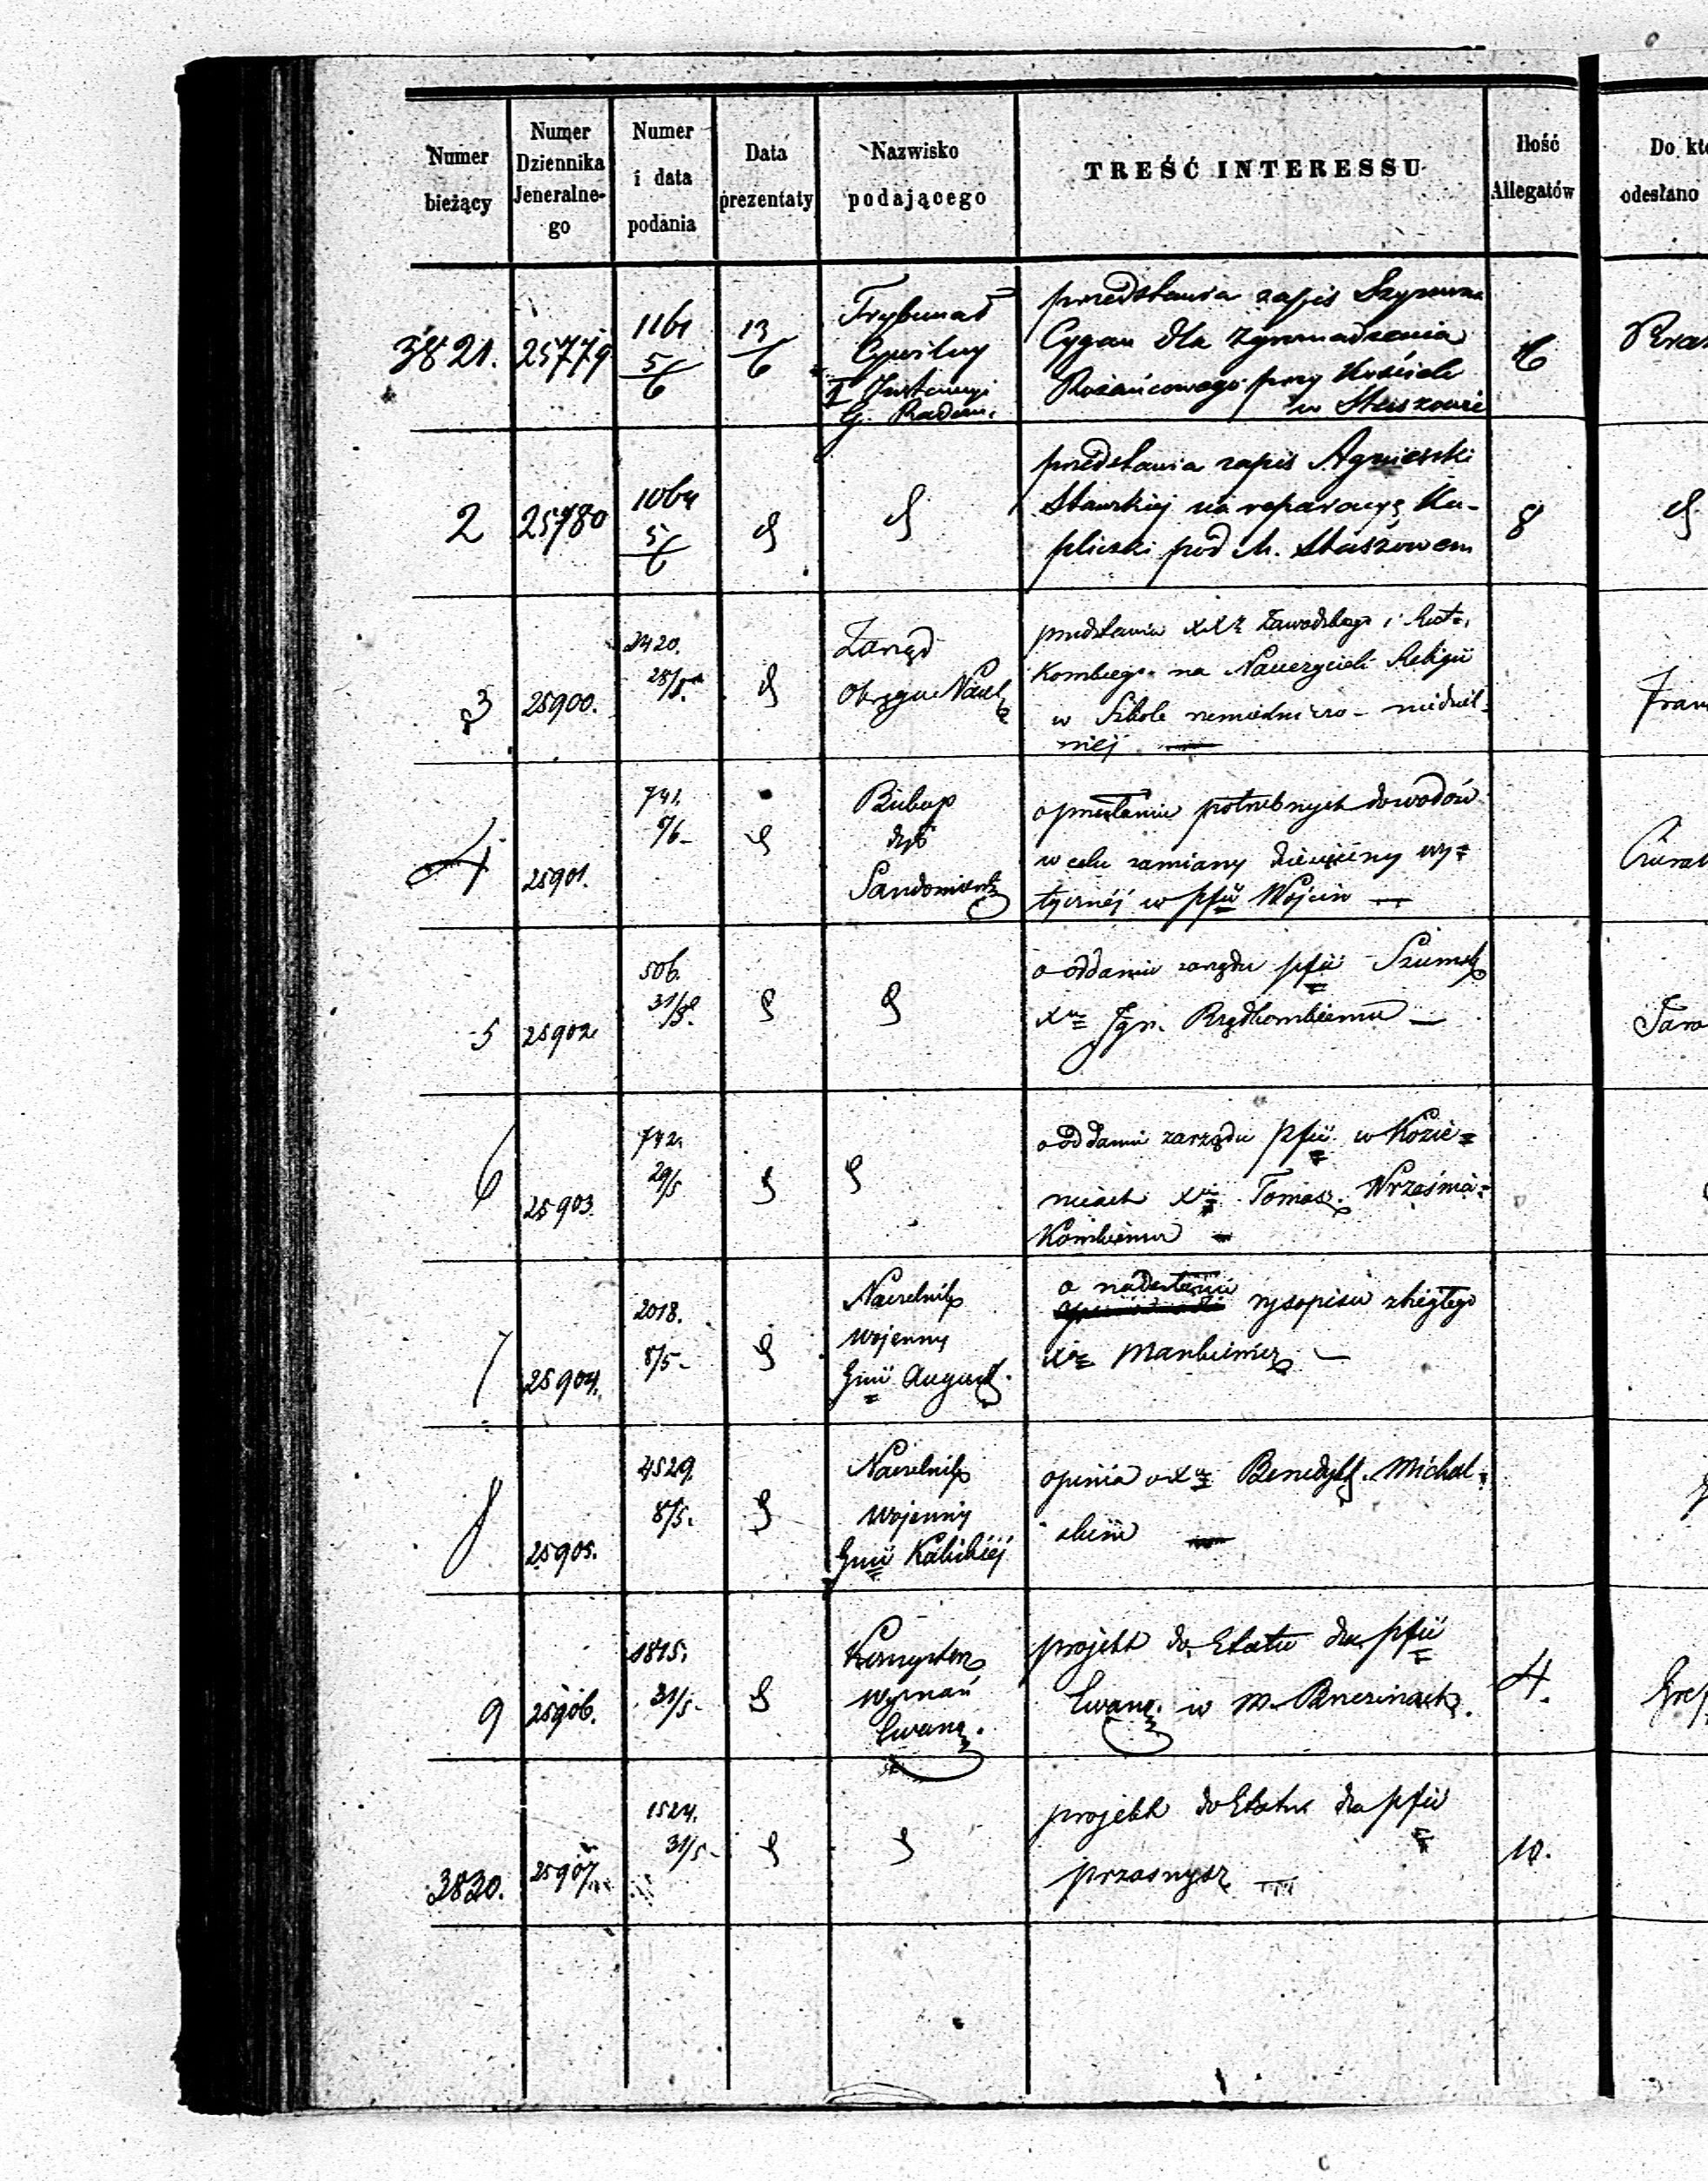 Numer bieżący
Numer Dziennika Jeneralne-go
Numer i data podania
Data prezentaty
Nazwisko podającego
TREŚĆ INTERESSU
Ilość Allegatów
Do kt
odesłano
3821. 25779 1161 5/6 13/6
Trybunał
Cywilny
I Instancyi
G. Radom.
przedstawia zapis Szymona
Cygan dla Zgromadzenia
Rożańcowego przy Kościele
w Staszowie
16
2 25780 1064 5/6
przedstawia zapis Agnieszki
Stawskiej na reparacyę Ka-
pliczki pod M. Staszowem
8
3 25900. 2420. 28/5
Zarząd
Okręgu Nauk
przedstawia XXży Zawadzkiego i
na Nauczycieli Religii
w Szkole rzemieślniczo-niedziel-
nej
4 25901. 741. 5/6
Biskup
dyec
Sandomierski
o przesłanie potrzebnych dowodów
w celu zamiany dziesięciny wy-
tycznéj w pfii Wójcin
5 25902. 506. 31/5
o oddaniu zarządu pfii Szumsk
Xdzu Ign.
6 25903. 742. 29/5
o oddaniu zarządu pfii w Kozie-
nicach Xdzu Tomasz.
7 25904. 2018. 8/5
Naczelnik
Wojenny
Gnii August.
o nadesłanie
rysopisu zbiegłego
Xdza Mankiewicz
8 25905. 4529. 8/5.
Naczelnik
Wojenny
Gnii Kaliskiéj
opinia o Xdzu Benedykt. Michal-
skim
9 25906. 1815. 31/5
Konsystorz
wyznań
Ewang.
projekt do Etatu dla pfii
Ewang. w M. Brzezinach.
4.
3830. 25907. 1524. 31/5
projekt do Etatu dla pfii
przasnysz
10.